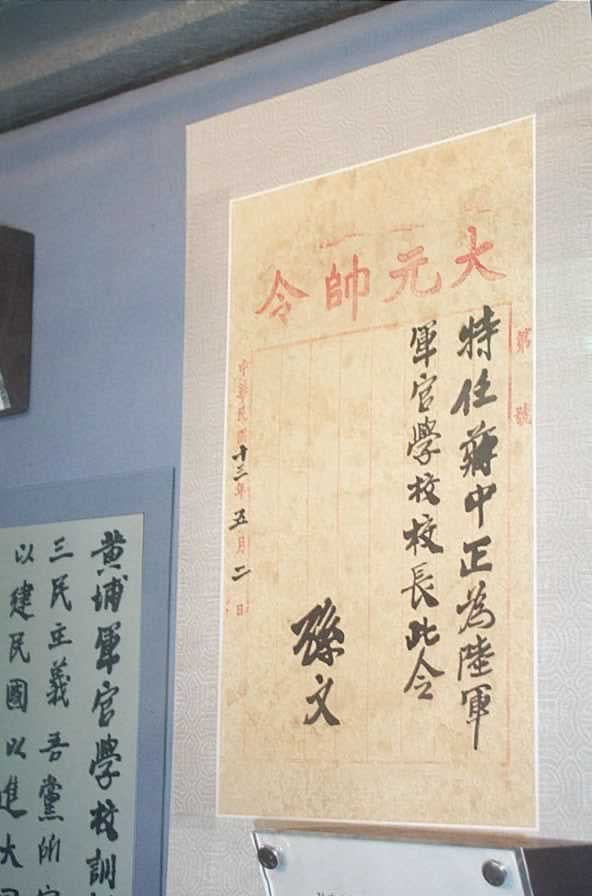 大元帥令
第 號
特任蔣中正為陸軍
軍官學校校長此令
孫文
中華民國十三年五月二日
黃埔軍官學校訓
三民主義 吾黨所宗
以建民國 以進大